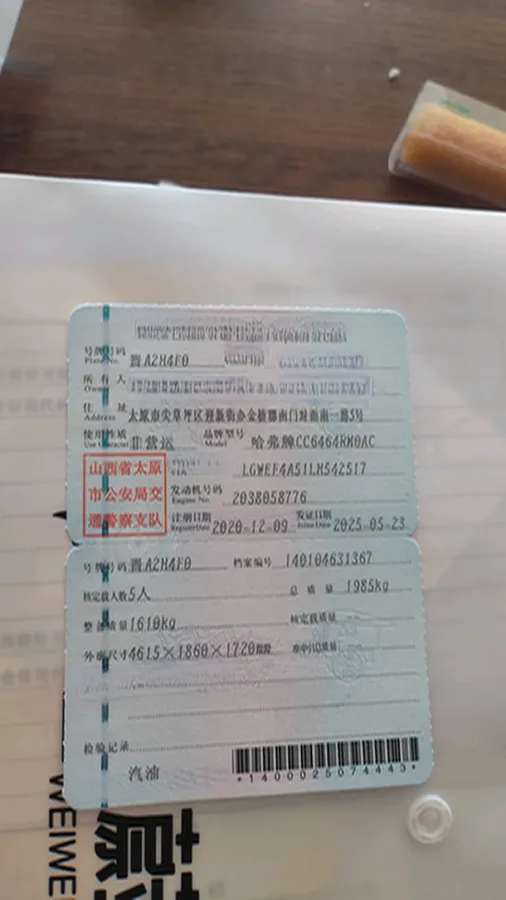 号牌号码 晋A2H4F0
Plate No.
所有人
Owner
住址 太原市尖草坪区迎新街办金
Address 南门对面南一路5号
使用性质 非营运 品牌型号 哈弗牌CC6464RM0AC
Use Character Model
山西省太原
市公安局交
通警察支队
VIN LGWEF4A51LH542517
发动机号码 2038058776
Engine No.
注册日期 2020-12-09 发证日期 2025-05-23
Register Date Issue Date
号牌号码 晋A2H4F0 档案编号 140104631367
核定载人数 5人 总质量 1985kg
整备质量 1610kg 核定载质量 --
外廓尺寸 4615×1860×1720
检验记录
汽油
*1400025074443*
WEIWE